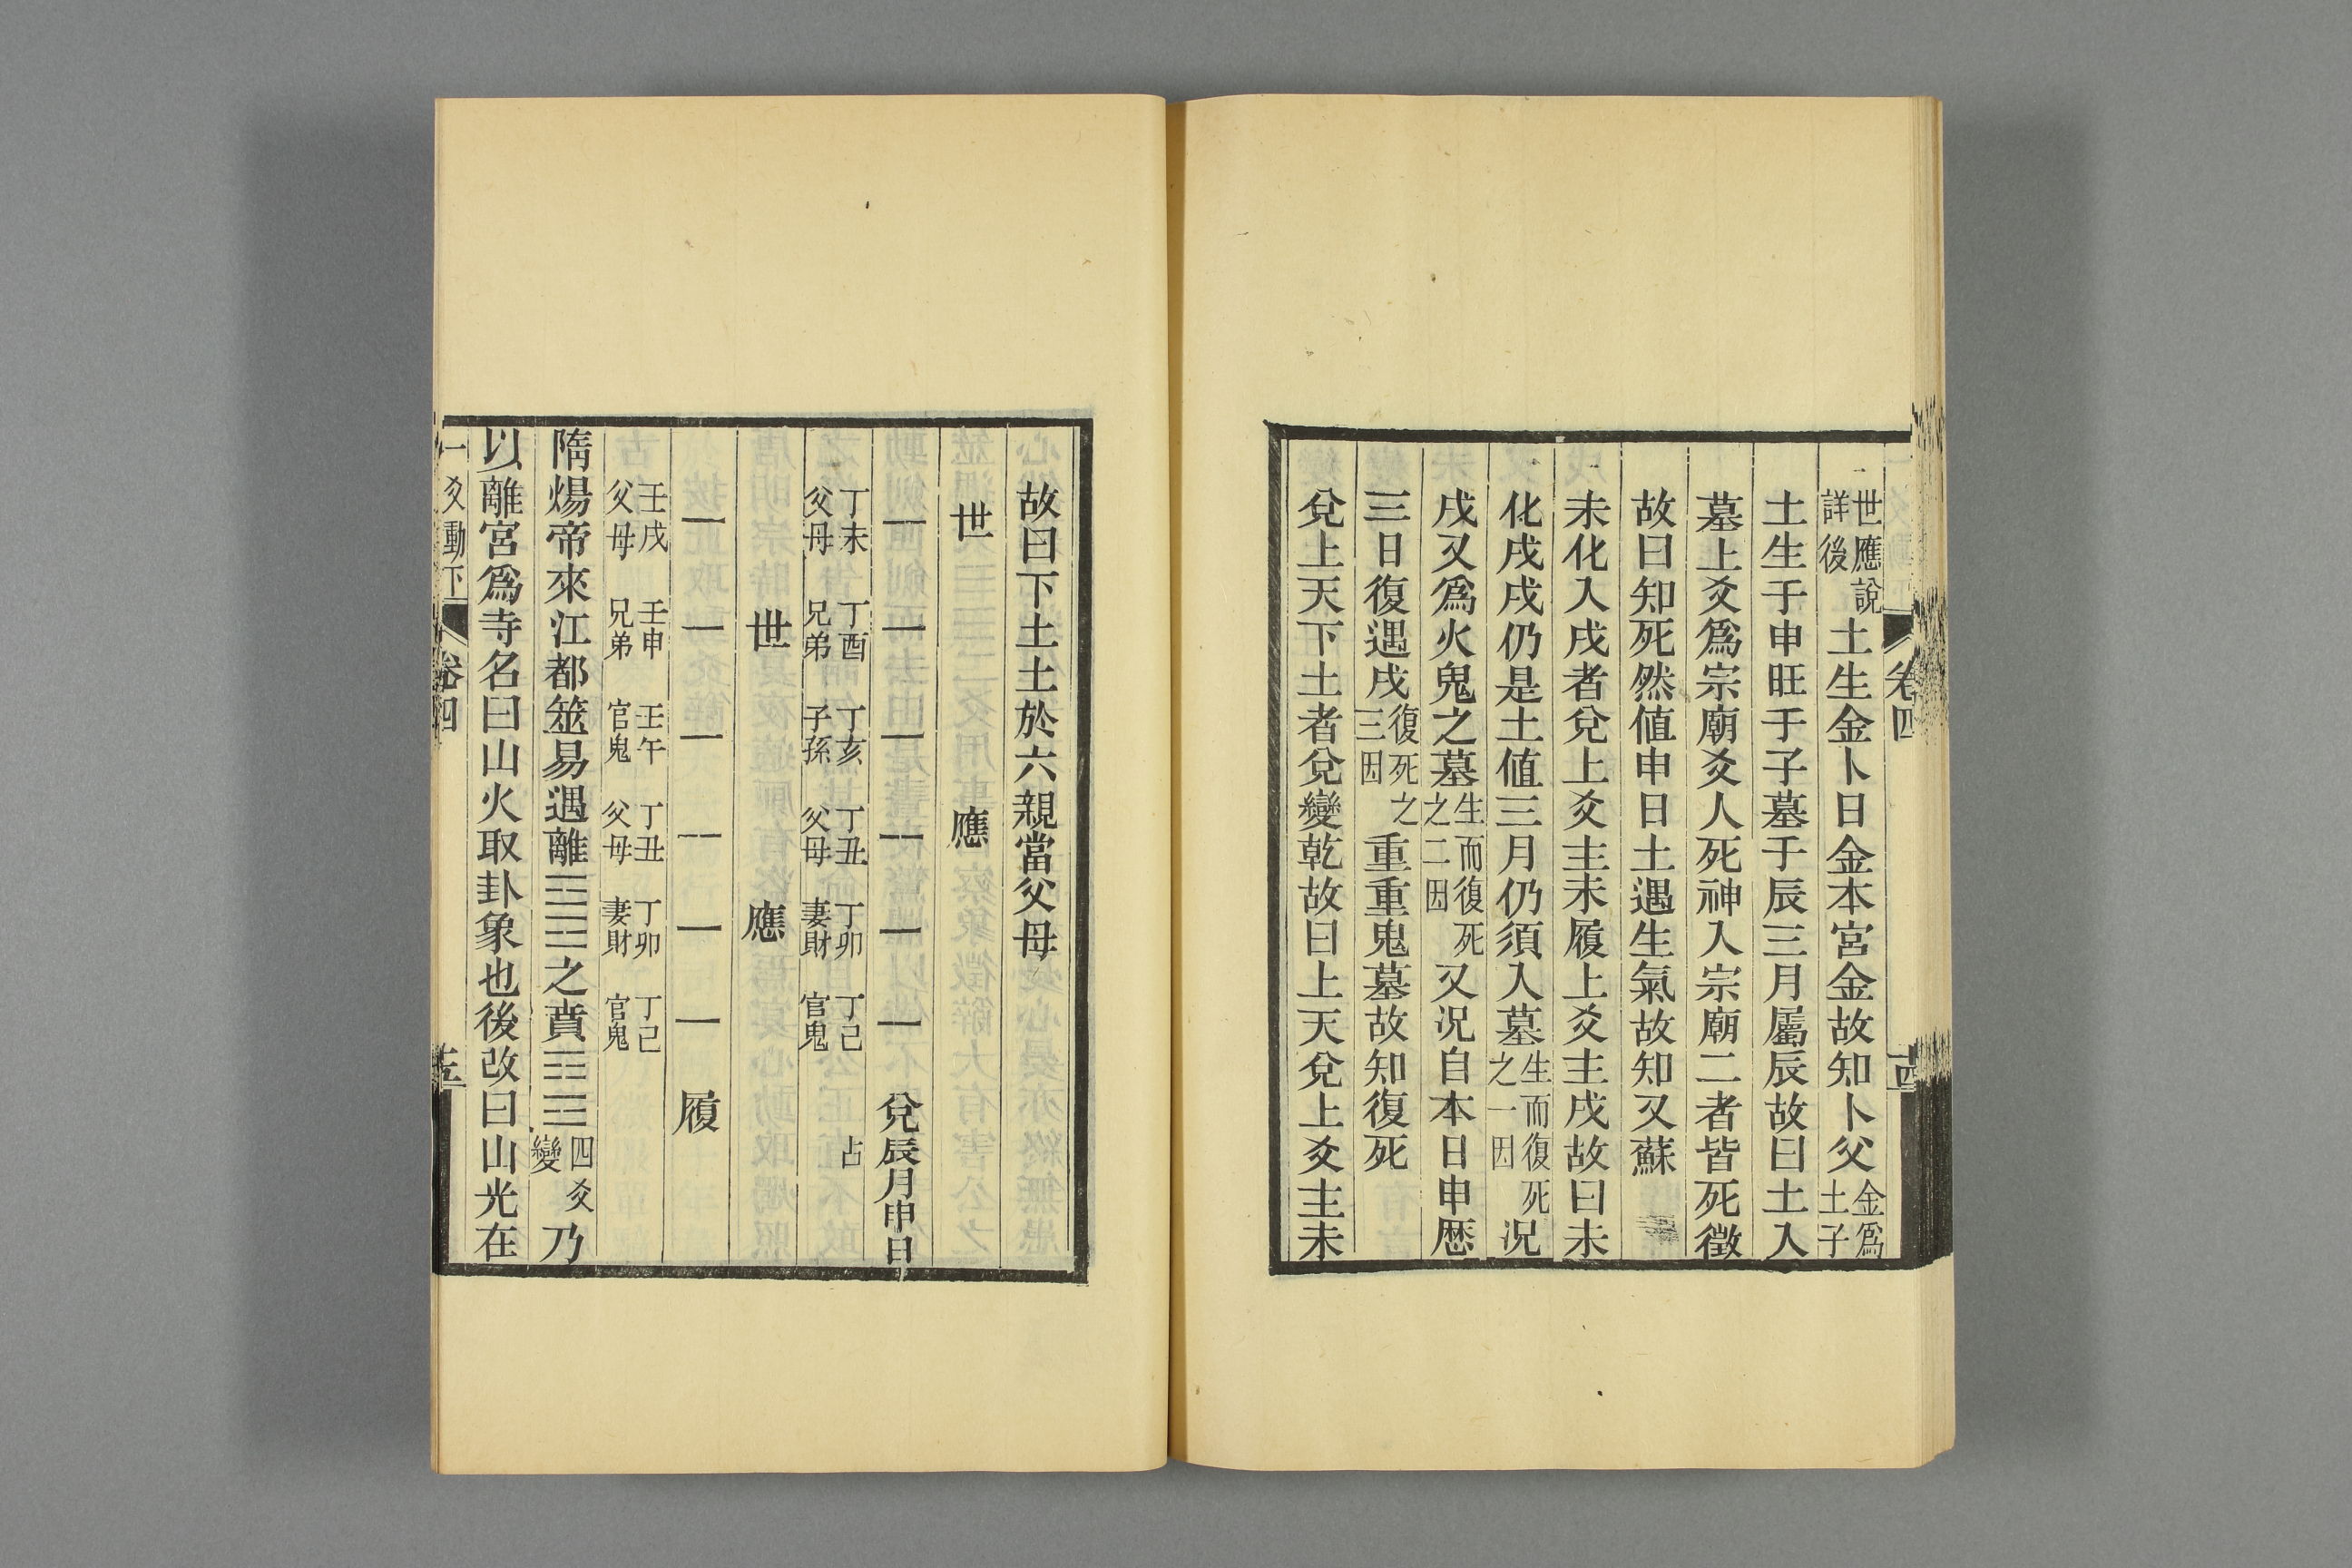 世應說詳後土生金卜日金本宮金故知卜父金爲土子
土生于申旺于子墓于辰三月屬辰故曰土入
墓上爻爲宗廟爻人死神入宗廟二者皆死徵
故曰知死然値申日土遇生氣故知又蘇
未化入戌者兌上爻主未履上爻主戌故曰未
化戌戌仍是土値三月仍須入墓生而復死之一因況
戌又爲火鬼之墓生而復死之二因又況自本日申歷
三日復遇戌復死之三因重重鬼墓故知復死
兌上天下土者兌變乾故曰上天兌上爻主未
卷四
故曰下土土於六親當父母
世 應
⚋ ⚊ ⚊ ⚋ ⚊ ⚊ 兌辰月申日占
丁未父母 丁酉兄弟 丁亥子孫 丁丑父母 丁卯妻財 丁己官鬼
世 應
⚊ ⚊ ⚊ ⚋ ⚊ ⚊ 履
壬戌父母 壬申兄弟 壬午官鬼 丁丑父母 丁卯妻財 丁己官鬼
隋煬帝來江都筮易遇離☲☲之賁☶☲四爻變乃
以離宮爲寺名曰山火取卦象也後改曰山光在
一爻動下 卷四